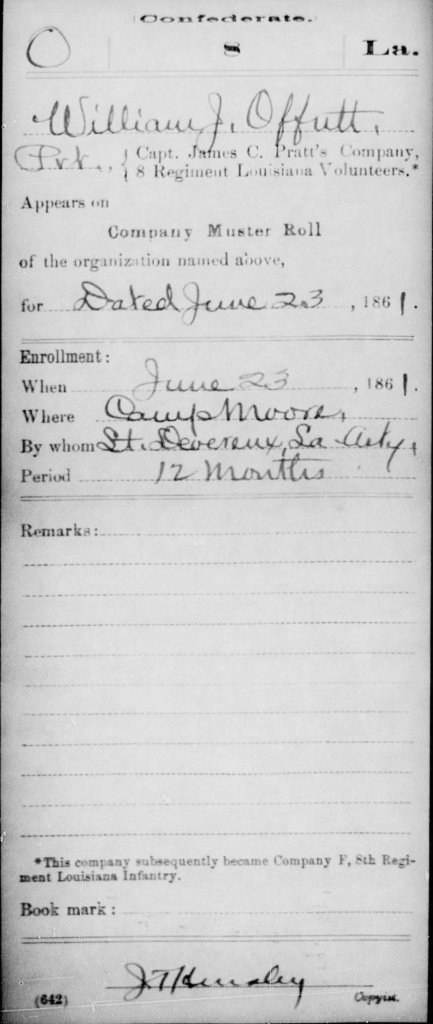 (Confederate.)
O 8 La.
William J. Offutt,
Pvt., { Capt. James C. Pratt's Company,
8 Regiment Louisiana Volunteers.*
Appears on
Company Muster Roll
of the organization named above,
for Dated June 23, 1861.
Enrollment:
When June 23, 1861.
Where Camp Moore,
By whom Lt. Devereux, La Arty,
Period 12 Months
Remarks:
*This company subsequently became Company F, 8th Regi-
ment Louisiana Infantry.
Book mark:
J T Hensley
(642) Copyist.